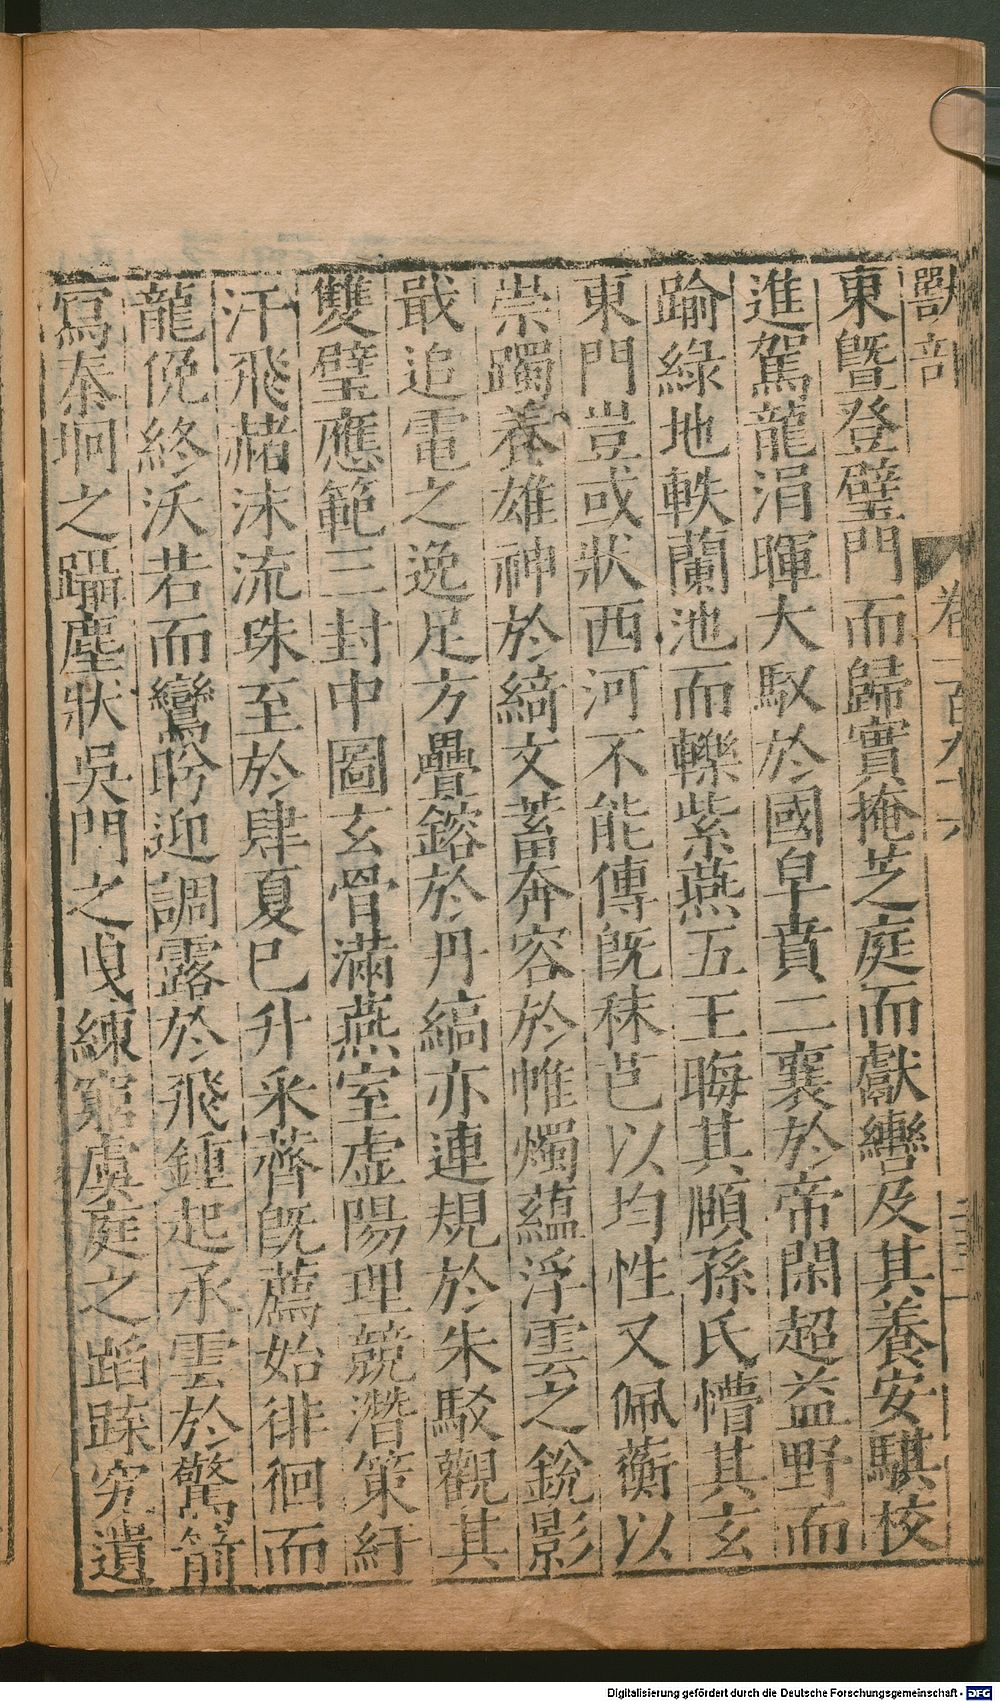 獸部 卷一百九十六
東暨登璧門而歸實掩芝庭而獻轡及其養安騏校
進駕龍涓暉大馭於國皁賁二襄於帝閑超益野而
踰綠地軼蘭池而轢紫燕五王晦其願孫氏懵其玄
東門豈或狀西河不能傳旣秣芑以均性又佩蘅以
崇躅養雄神於綺文蓄奔容於帷燭蘊浮雲之銳影
戢追電之逸足方疊鎔於丹縞亦連規於朱駁觀其
雙璧應範三封中圖玄骨滿燕室虛陽理競潛策紆
汗飛赭沫流珠至於肆夏巳升采薺旣薦始徘徊而
龍俛終沃若而鸞盻迎調露於飛鍾起承雲於驚箭
寫秦坰之躡塵狀吳門之曳練窮虞庭之蹈躒究遺
Digitalisierung gefördert durch die Deutsche Forschungsgemeinschaft - DFG